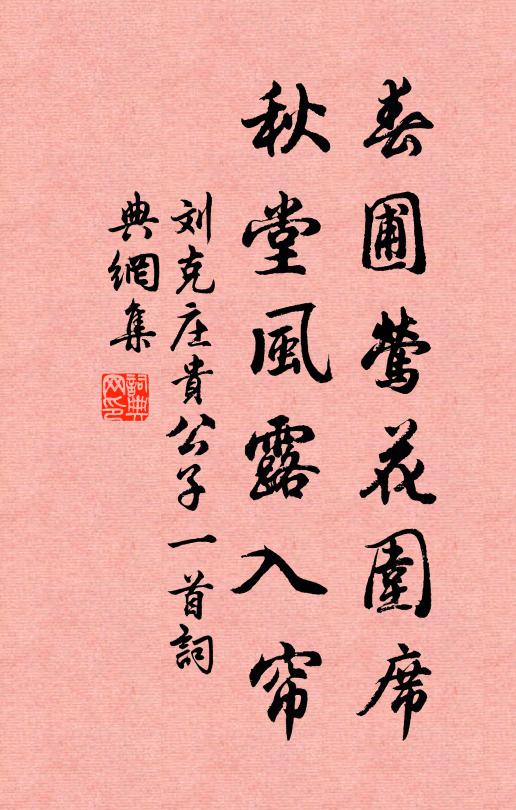 春圃鶯花圍席
秋堂風露入帘
刘克庄貴公子一首詞
典網集
詞典网印